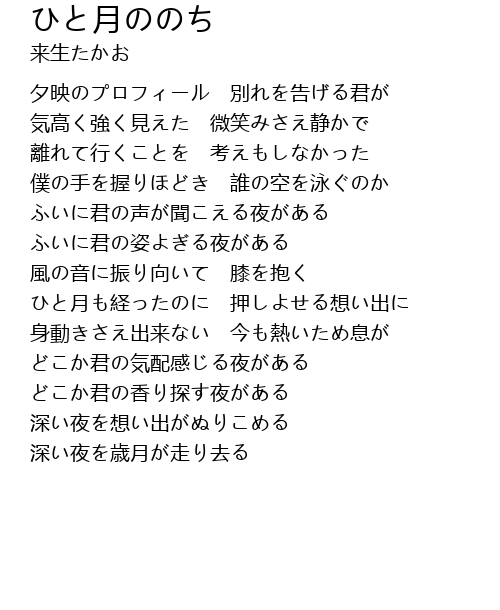 ひと月ののち
来生たかお
夕映のプロフィール　別れを告げる君が
気高く強く見えた　微笑みさえ静かで
離れて行くことを　考えもしなかった
僕の手を握りほどき　誰の空を泳ぐのか
ふいに君の声が聞こえる夜がある
ふいに君の姿よぎる夜がある
風の音に振り向いて　膝を抱く
ひと月も経ったのに　押しよせる想い出に
身動きさえ出来ない　今も熱いため息が
どこか君の気配感じる夜がある
どこか君の香り探す夜がある
深い夜を想い出がぬりこめる
深い夜を歳月が走り去る